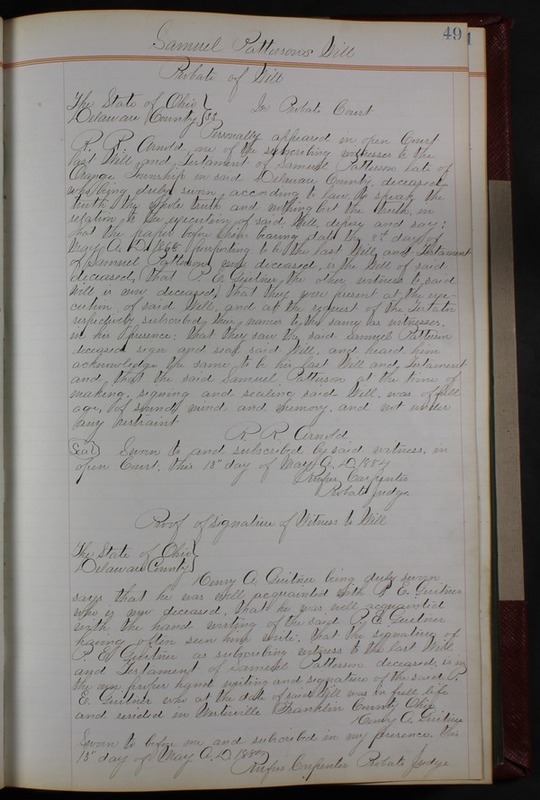 49
Samuel Patterson's Will
Probate of Will
The State of Ohio }
Delaware County } SS In Probate Court
Personally appeared in open Court
R. R. Arnold one of the subscribing witnesses to the
last Will and Testament of Samuel Patterson late of
Orange Township in said Delaware County, deceased,
who being duly sworn, according to law, to speak the
truth the whole truth and nothing but the truth, in
relation to the execution of said Will, depose and say:
that the paper before him bearing date the day of
May A. D. purporting to be the last Will and Testament
of Samuel Patterson now deceased, is the Will of said
deceased, that P. E. Guitner, the other witness to said
Will is now deceased, that they were present at the exe-
cution of said Will, and at the request of the testator
respectively subscribed their names to the same as witnesses,
in his presence; that they saw the said Samuel Patterson
deceased sign and seal said Will, and heard him
acknowledge the same to be his last Will and Testament
and that the said Samuel Patterson at the time of
making, signing and sealing said Will, was of full
age, of sound mind and memory, and not under
any restraint
R. R. Arnold
(Seal) Sworn to and subscribed by said witness, in
open Court, this 13" day of May A. D. 1884
Rufus Carpenter
Probate Judge
Proof of signature of Witness to Will
The State of Ohio }
Delaware County }
Henry A. Guitner being duly sworn
says that he was well acquainted with P. E. Guitner
who is now deceased, that he was well acquainted
with the hand writing of the said P. E. Guitner
having often seen him write, that the signature of
P. E. Guitner as subscribing witness to the last Will
and Testament of Samuel Patterson deceased, is in
the own proper hand writing and signature of the said P.
E. Guitner who at the date of said Will was in full life
and resided in Westerville Franklin County Ohio
Henry A. Guitner
Sworn to before me and subscribed in my presence this
13" day of May A. D. 1884
Rufus Carpenter Probate Judge